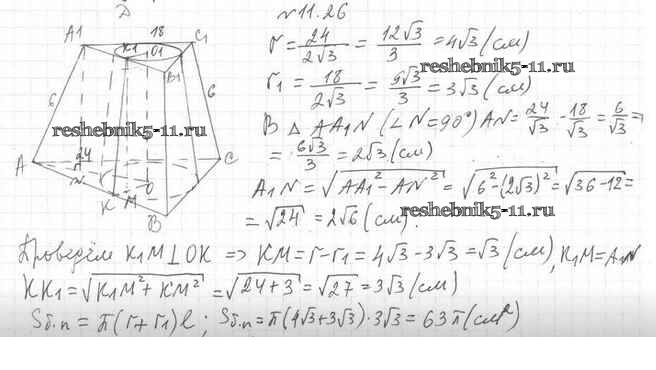 №11.26
A1 K1 18 C1
O1
B1
6 6
A 24 C
N K M O B
r = 24/(2√3) = 12√3/3 = 4√3 (см)
reshebnik5-11.ru
r₁ = 18/(2√3) = 9√3/3 = 3√3 (см)
reshebnik5-11.ru
В △ AA₁N (∠N=90°) AN = 24/√3 - 18/√3 = 6/√3 =
= 6√3/3 = 2√3 (см)
A₁N = √(AA₁² - AN²) = √(6² - (2√3)²) = √(36-12) =
= √24 = 2√6 (см).
reshebnik5-11.ru
Проведём K₁M ⊥ OK => KM = r - r₁ = 4√3 - 3√3 = √3 (см), K₁M = A₁N
KK₁ = √(K₁M² + KM²) = √(24+3) = √27 = 3√3 (см)
Sб.п = π(r+r₁)l; Sб.п = π(4√3+3√3)·3√3 = 63π (см²)